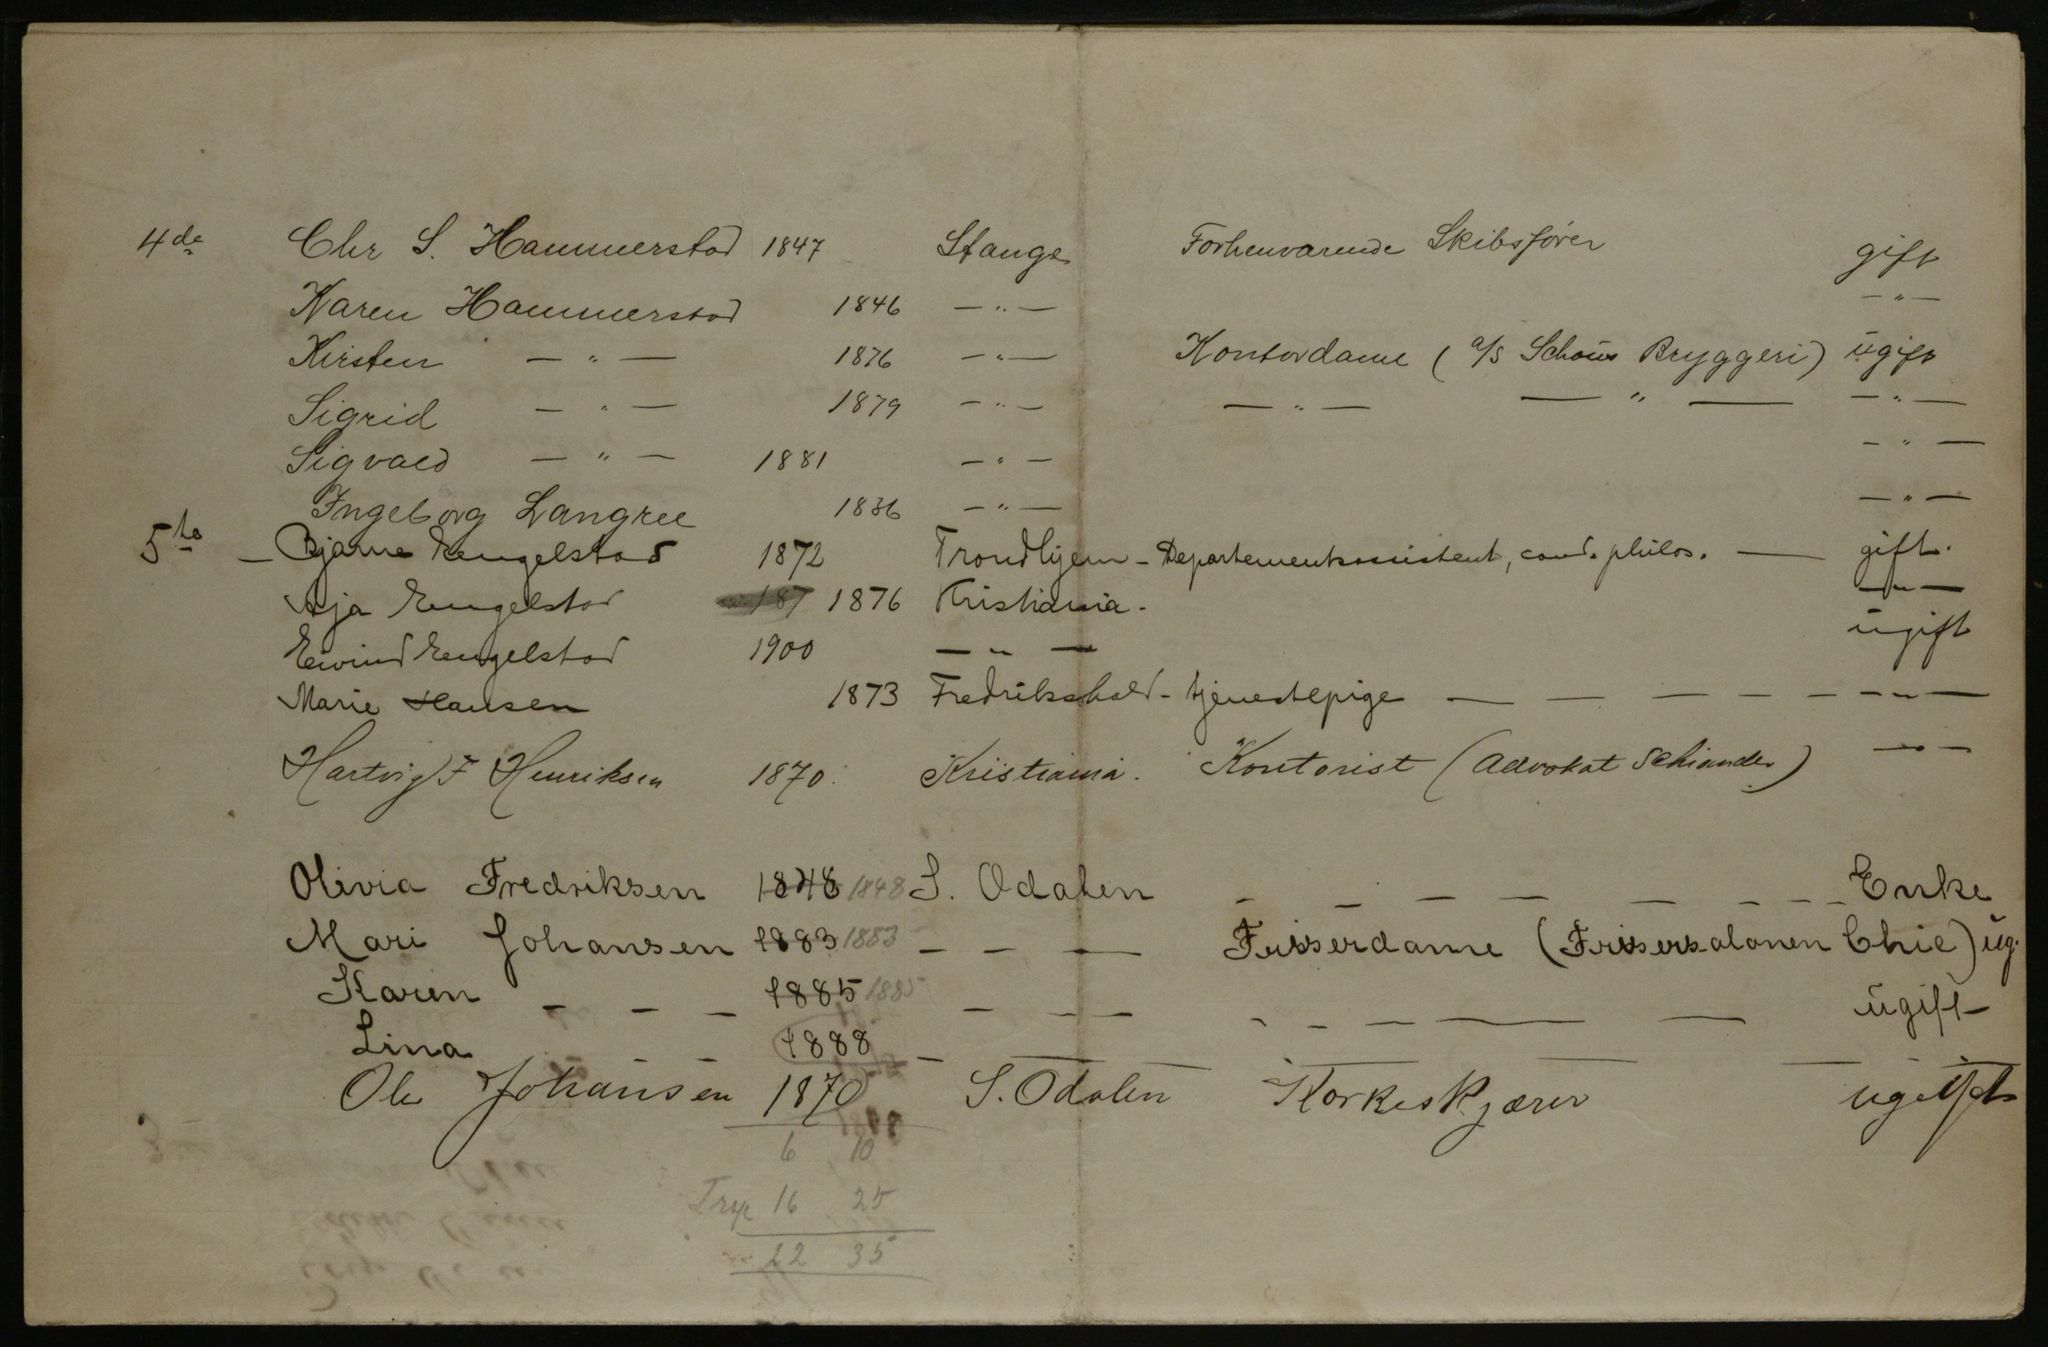 4de Chr S. Hammerstad 1847 Stange Forhenværende Skibsfører gift
Karen Hammerstad 1846 — " — — " —
Kirsten — " — 1876 — " — Kontordame (A/S Schous Bryggeri) ugift
Sigrid — " — 1879 — " — — " — — " — — " —
Sigvald — " — 1881 — " — — " —
Ingeborg Langree 1836 — " — — " —
5te — Bjarne Engelstad 1872 Trondhjem - Departementsassistent, cand. philos. — gift.
Engelstad 1876 Kristiania. — " —
Eivind Engelstad 1900 — " — ugift
Marie Hansen 1873 Fredrikshald - tjenestepige — — — — — — " —
Hartvig F Henriksen 1870. Kristiania. Kontorist (Advokat Schiander) — " —
Olivia Fredriksen 1848 1848 S. Odalen — — — — — — — — Enke
Mari Johansen 1883 1883 — — — Frisserdame (Frissersalonen Chic) ug.
Karen — — — 1885 1885 — — — — — — — — ugift
Lina — — 1888 — — — — — —
Ole Johansen 1870 S. Odalen Korkeskjærer ugift
6 10
16 25
22 35